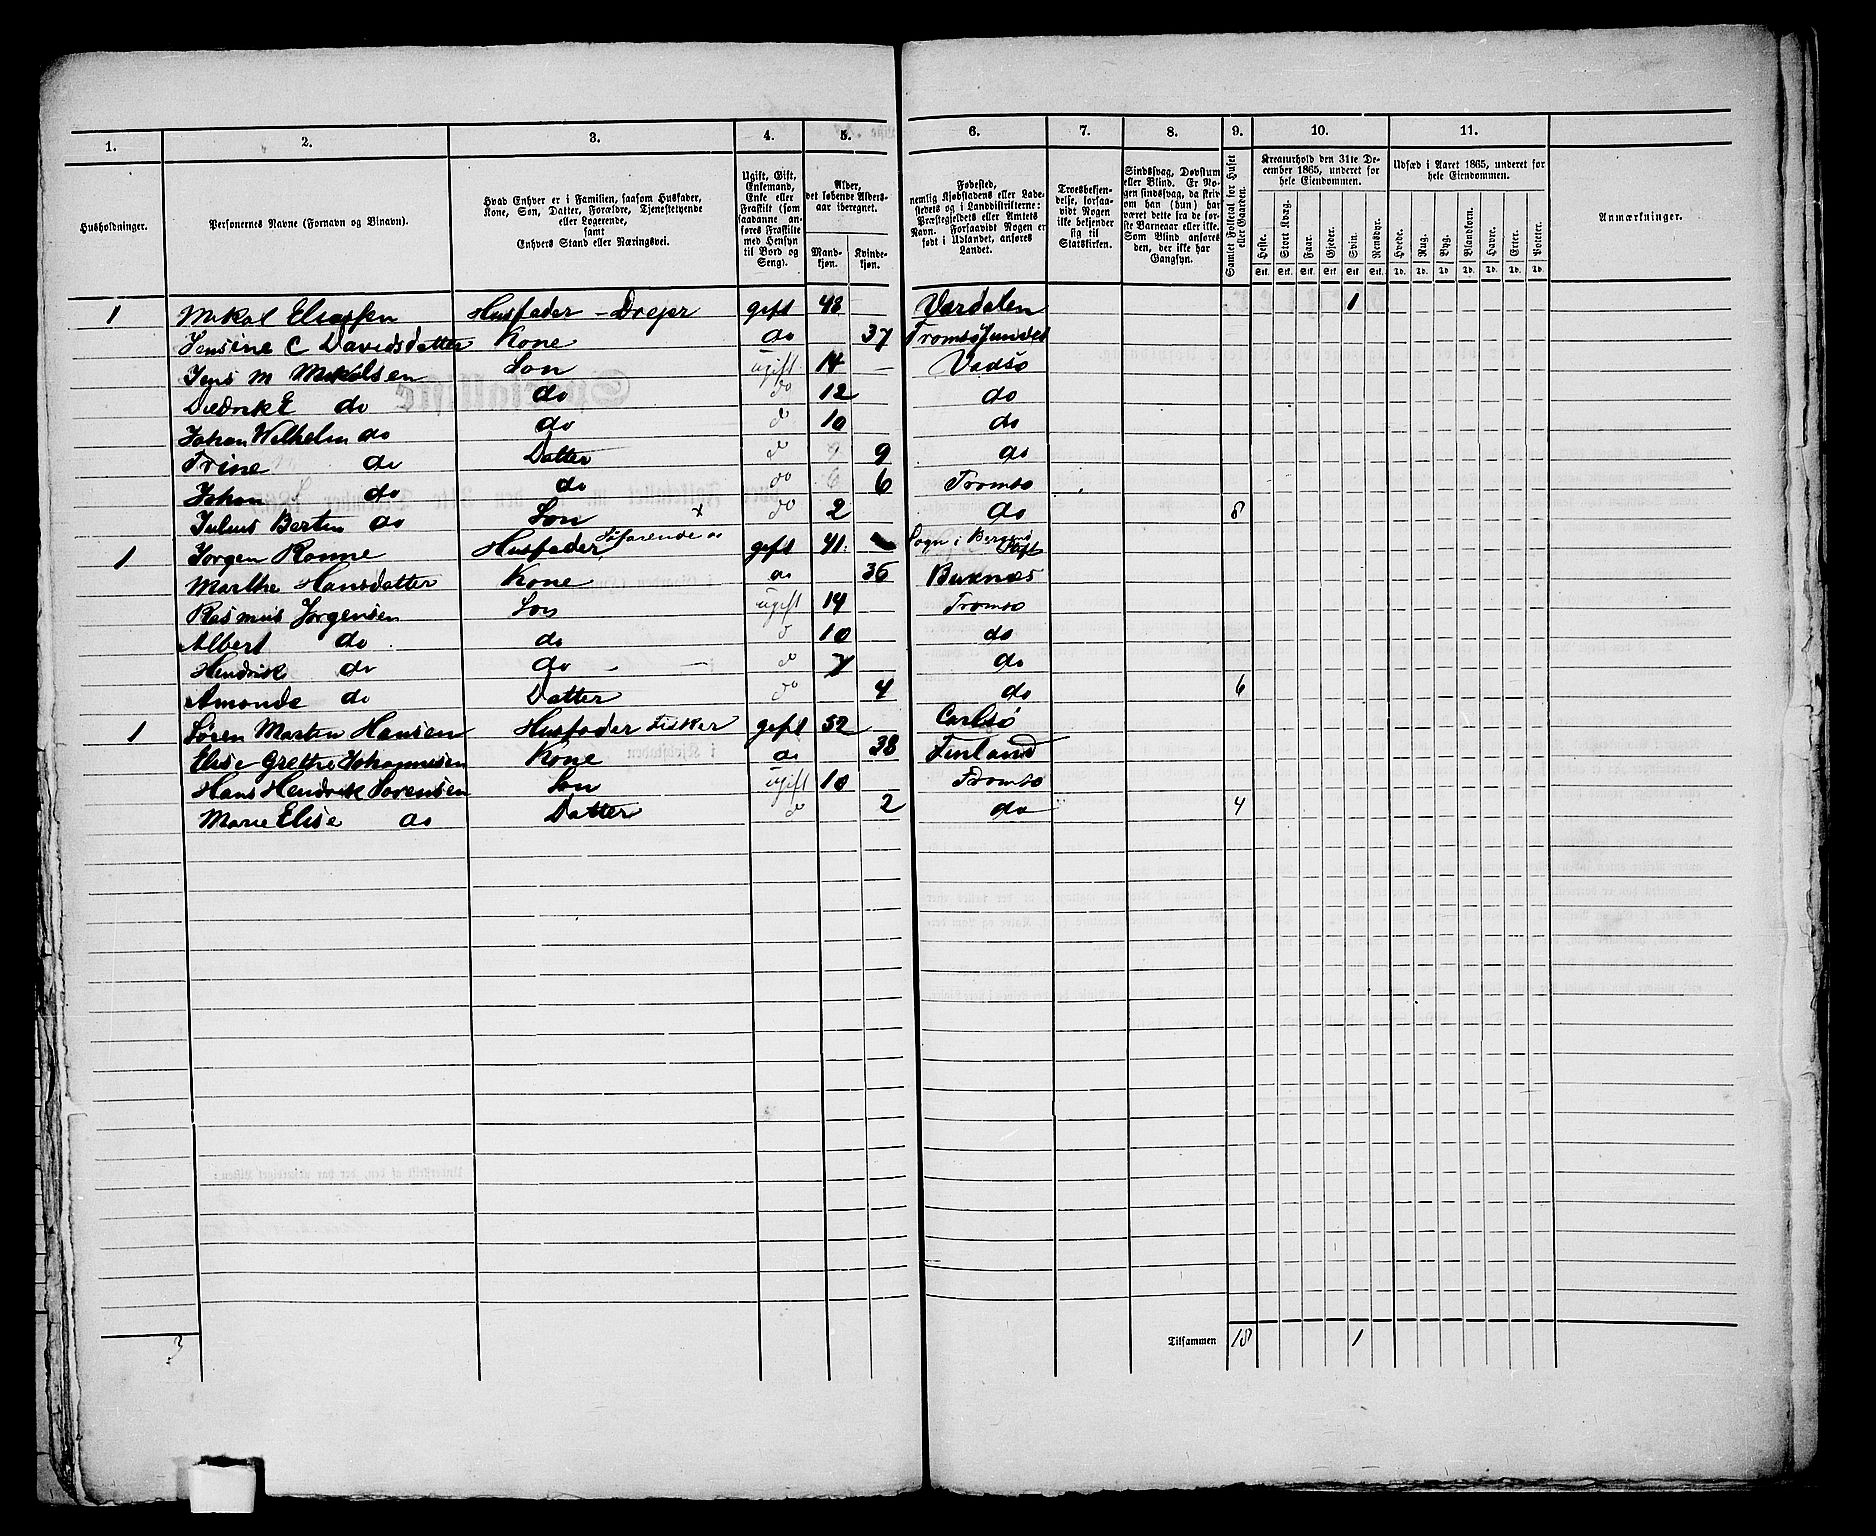 1. 2. 3. 4. 5. 6. 7. 8. 9. 10. 11.
Husholdninger.
Personernes Navne (Fornavn og Binavn).
Hvad Enhver er i Familien, saasom Husfader, Kone, Søn, Datter, Forældre, Tjenestetyende eller Logerende, samt Enhvers Stand eller Næringsvei.
Ugift, Gift, Enkemand, Enke eller Fraskilt (som saadanne anføres Fraskilte med Hensyn til Bord og Seng).
Alder, det løbende Aldersaar iberegnet.
Mandkjøn. Kvindekjøn.
Fødested, nemlig Kjøbstadens eller Ladestedets og i Landdistrikterne: Præstegjeldets eller Amtets Navn. Forsaavidt Nogen er født i Udlandet, anføres Landet.
Troesbekjendelse, forsaavidt Nogen ikke bekjender sig til Statskirken.
Sindssvag, Døvstum eller Blind. Er Nogen sindssvag, da skrives om han (hun) har været dette fra de første Barneaar eller ikke. Som Blind anføres den, der ikke har Gangsyn.
Samlet Folketal for Huset eller Gaarden.
Kreaturhold den 31te December 1865, underet for hele Eiendommen.
Heste. Stort Kvæg. Faar. Gjeder. Svin. Rensdyr.
Stk. Stk. Stk. Stk. Stk. Stk.
Udsæd i Aaret 1865, underet for hele Eiendommen.
Hvede. Rug. Byg. Blandkorn. Havre. Erter. Poteter.
Td. Td. Td. Td. Td. Td. Td.
Anmærkninger.
1 Mikal Eliassen Husfader - Drejer gift 48 Værdalen 1
Jensine C Davidsdatter Kone do 37 Tromsøsundet
Jens M Mikalsen Søn ugift 14 Vadsø
Didrik E do do do 12 do
Johan Wilhelm do do d 10 do
Trine do Datter d 9 do
Johan do do do 6 Tromsø
Julius Bertin do Søn do 2 do 8
1 Jørgen Rønne Husfader Søfarende gift 41 Sogn i Bergens Stift
Marthe Hansdatter Kone do 36 Buknæs
Rasmus Jørgensen Søn ugift 14 Tromsø
Albert do do d 10 do
Hendrik do do d 7 do
Amonde do Datter do 4 do 6
1 Søren Martin Hansen Husfader Fisker gift 52 Carlsø
Elise Grethe Johannesen Kone do 38 Finland
Hans Hendrik Sørensen Søn ugift 10 Tromsø
Marie Elise do Datter d 2 do 4
3 Tilsammen 18 1